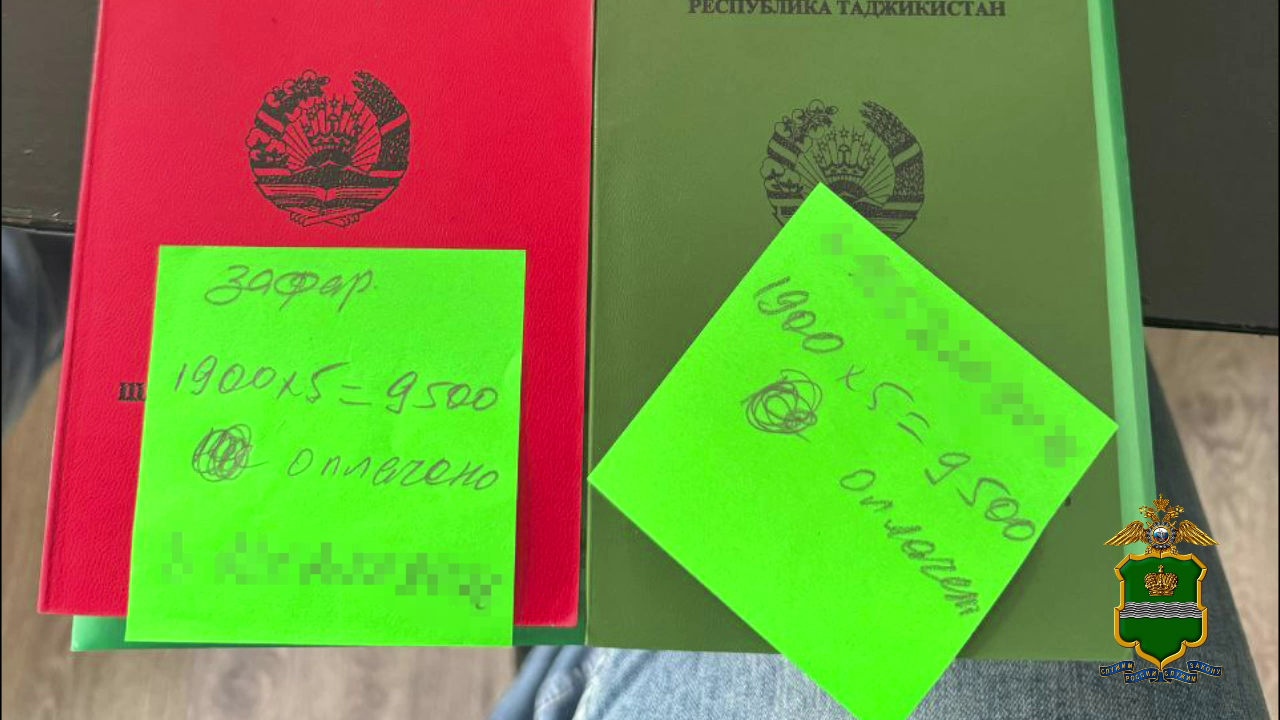 РЕСПУБЛИКА ТАДЖИКИСТАН
зафар.
1900х5=9500
оплачено
1900х5=9500
оплачет
СЛУЖИМ РОССИИ СЛУЖИМ ЗАКОНУ